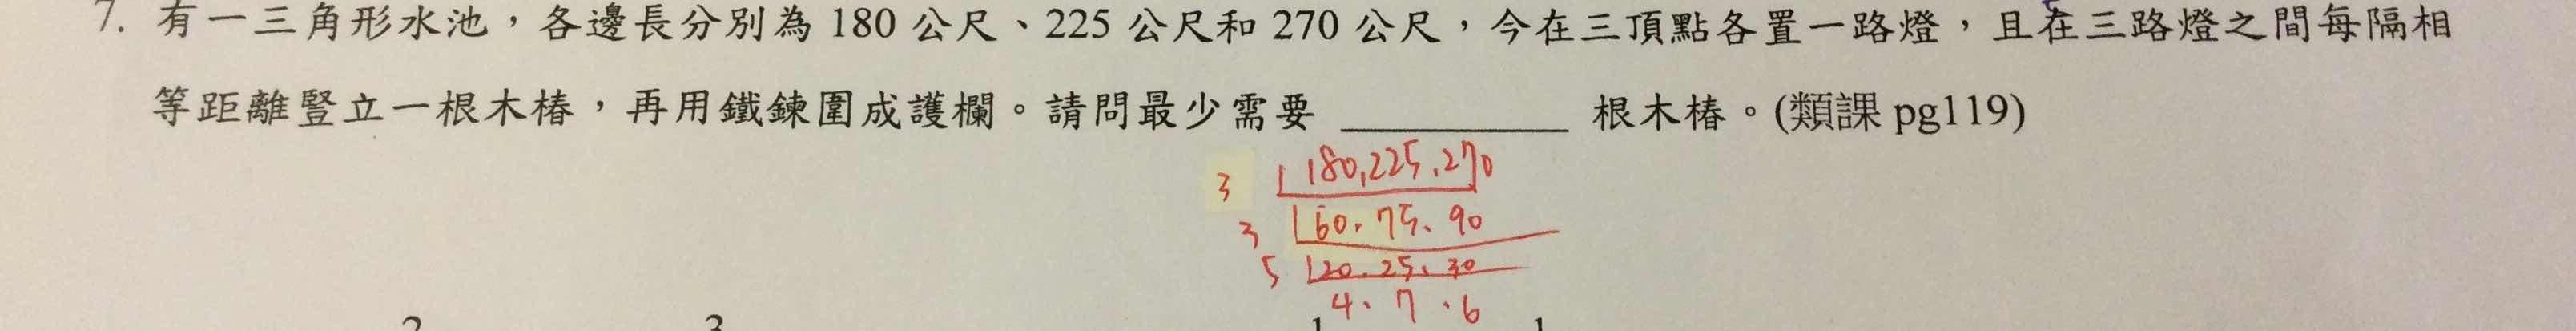 7. 有一三角形水池，各邊長分別為 180 公尺、225 公尺和 270 公尺，今在三頂點各置一路燈，且在三路燈之間每隔相
等距離豎立一根木樁，再用鐵鍊圍成護欄。請問最少需要 ________ 根木樁。(類課 pg119)
3 180,225,270
3 60、75、90
5 20、25、30
4、7、6